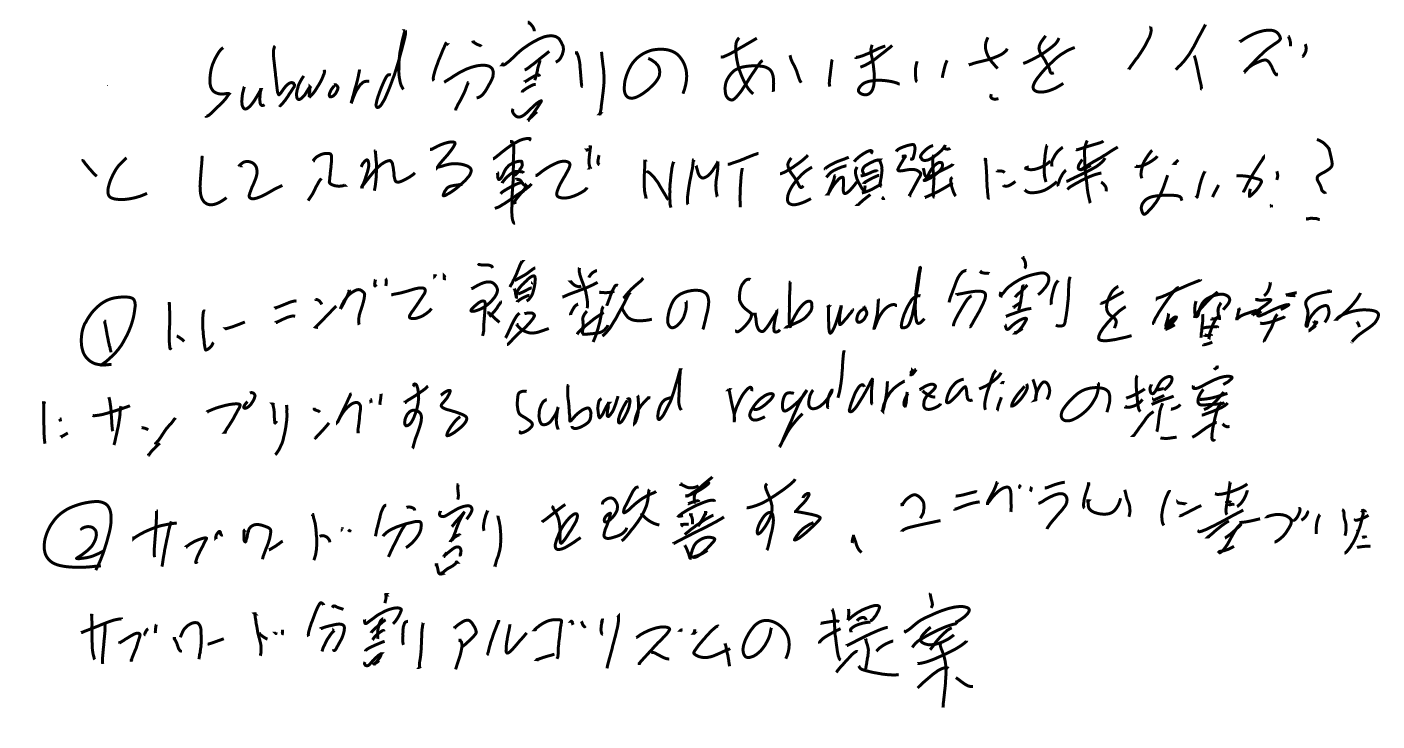 Subword分割りのあいまいさをノイズ
として入れる事でNMTを頑強に出来ないか?
①トレーニングで複数のSubword分割を確率的
にサンプリングするsubword regularizationの提案
②サブワード分割りを改善する、ユニグラムに基づいた
サブワード分割アルゴリズムの提案